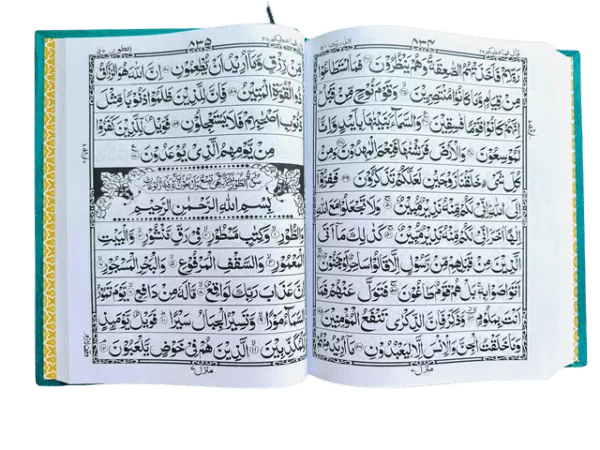 ٨٣٤
رَبِّهِمْ فَاَخَذَتْهُمُ الصّٰعِقَةُ وَهُمْ يَنْظُرُوْنَ فَمَا اسْتَطَاعُوْا
مِنْ قِيَامٍ وَّمَا كَانُوْا مُنْتَصِرِيْنَ وَقَوْمَ نُوْحٍ مِّنْ قَبْلُ
اِنَّهُمْ كَانُوْا قَوْمًا فٰسِقِيْنَ وَالسَّمَآءَ بَنَيْنٰهَا بِاَيْىدٍ وَّاِنَّا
لَمُوْسِعُوْنَ وَالْاَرْضَ فَرَشْنٰهَا فَنِعْمَ الْمٰهِدُوْنَ وَمِنْ
كُلِّ شَیْءٍ خَلَقْنَا زَوْجَيْنِ لَعَلَّكُمْ تَذَكَّرُوْنَ فَفِرُّوْٓا
اِلَى اللّٰهِ اِنِّىْ لَكُمْ مِّنْهُ نَذِيْرٌ مُّبِيْنٌ وَلَا تَجْعَلُوْا مَعَ اللّٰهِ
اِلٰهًا اٰخَرَ اِنِّىْ لَكُمْ مِّنْهُ نَذِيْرٌ مُّبِيْنٌ كَذٰلِكَ مَآ اَتَى
الَّذِيْنَ مِنْ قَبْلِهِمْ مِّنْ رَّسُوْلٍ اِلَّا قَالُوْا سَاحِرٌ اَوْ مَجْنُوْنٌ
اَتَوَاصَوْا بِهٖ بَلْ هُمْ قَوْمٌ طَاغُوْنَ فَتَوَلَّ عَنْهُمْ فَمَآ
اَنْتَ بِمَلُوْمٍ وَّذَكِّرْ فَاِنَّ الذِّكْرٰى تَنْفَعُ الْمُؤْمِنِيْنَ
وَمَا خَلَقْتُ الْجِنَّ وَالْاِنْسَ اِلَّا لِيَعْبُدُوْنِ مَآ اُرِيْدُ
منزل ٧
٨٣٥
مِنْ رِّزْقٍ وَّمَآ اُرِيْدُ اَنْ يُّطْعِمُوْنِ اِنَّ اللّٰهَ هُوَ الرَّزَّاقُ
ذُو الْقُوَّةِ الْمَتِيْنُ فَاِنَّ لِلَّذِيْنَ ظَلَمُوْا ذَنُوْبًا مِّثْلَ
ذَنُوْبِ اَصْحٰبِهِمْ فَلَا يَسْتَعْجِلُوْنِ فَوَيْلٌ لِّلَّذِيْنَ كَفَرُوْا
مِنْ يَّوْمِهِمُ الَّذِىْ يُوْعَدُوْنَ
بِسْمِ اللّٰهِ الرَّحْمٰنِ الرَّحِيْمِ
وَالطُّوْرِ وَكِتٰبٍ مَّسْطُوْرٍ فِىْ رَقٍّ مَّنْشُوْرٍ وَّالْبَيْتِ
الْمَعْمُوْرِ وَالسَّقْفِ الْمَرْفُوْعِ وَالْبَحْرِ الْمَسْجُوْرِ
اِنَّ عَذَابَ رَبِّكَ لَوَاقِعٌ مَّا لَهٗ مِنْ دَافِعٍ يَّوْمَ تَمُوْرُ
السَّمَآءُ مَوْرًا وَّتَسِيْرُ الْجِبَالُ سَيْرًا فَوَيْلٌ يَّوْمَئِذٍ
لِّلْمُكَذِّبِيْنَ الَّذِيْنَ هُمْ فِىْ خَوْضٍ يَّلْعَبُوْنَ
منزل ٧